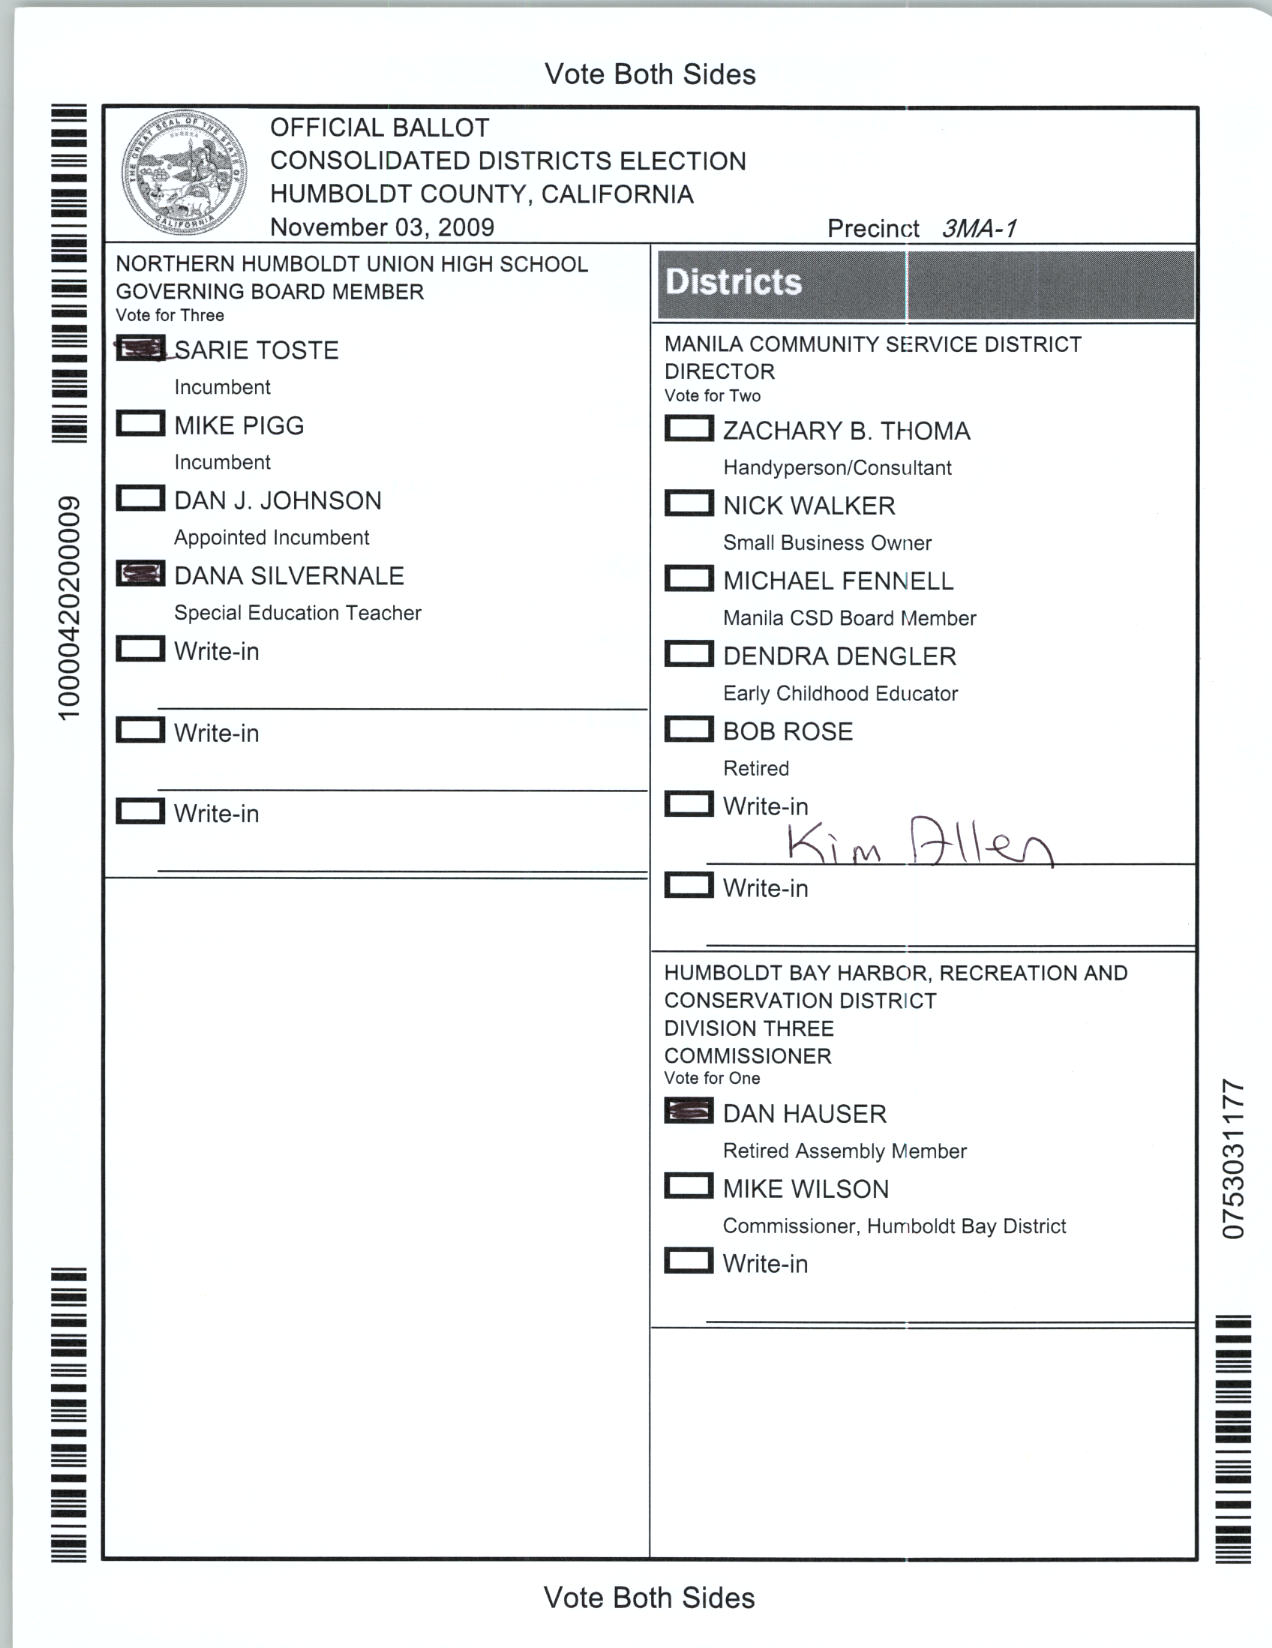 Vote Both Sides
OFFICIAL BALLOT
CONSOLIDATED DISTRICTS ELECTION
HUMBOLDT COUNTY, CALIFORNIA
November 03, 2009
Precinct 3MA-1
THE GREAT SEAL OF THE STATE OF CALIFORNIA
EUREKA
10000420200009
NORTHERN HUMBOLDT UNION HIGH SCHOOL
GOVERNING BOARD MEMBER
Vote for Three
SARIE TOSTE
Incumbent
MIKE PIGG
Incumbent
DAN J. JOHNSON
Appointed Incumbent
DANA SILVERNALE
Special Education Teacher
Write-in
Write-in
Write-in
Districts
MANILA COMMUNITY SERVICE DISTRICT
DIRECTOR
Vote for Two
ZACHARY B. THOMA
Handyperson/Consultant
NICK WALKER
Small Business Owner
MICHAEL FENNELL
Manila CSD Board Member
DENDRA DENGLER
Early Childhood Educator
BOB ROSE
Retired
Write-in
Kim Allen
Write-in
HUMBOLDT BAY HARBOR, RECREATION AND
CONSERVATION DISTRICT
DIVISION THREE
COMMISSIONER
Vote for One
DAN HAUSER
Retired Assembly Member
MIKE WILSON
Commissioner, Humboldt Bay District
Write-in
0753031177
Vote Both Sides